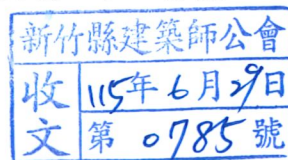 新竹縣建築師公會
收文
115年6月29日
第0785號